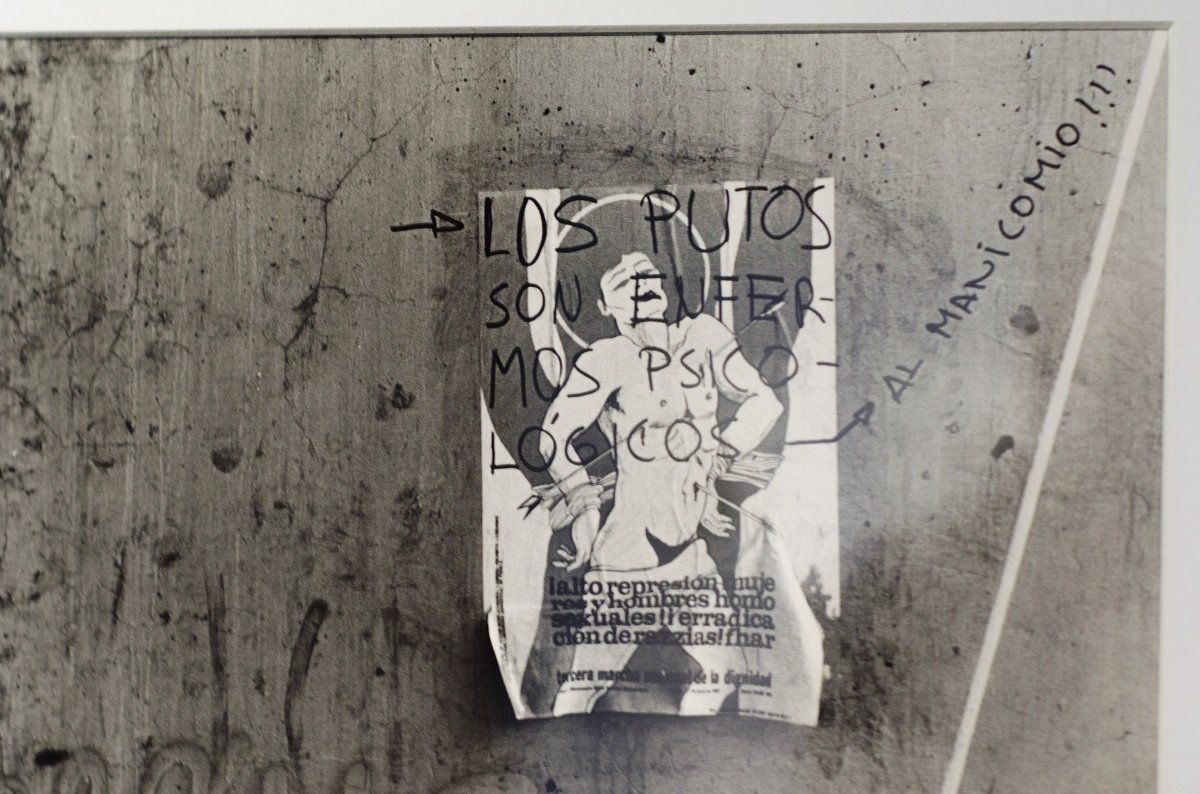 → LOS PUTOS
SON ENFER-
MOS PSICO-
LÓGICOS → AL MANICOMIO!!!
¡alto represión muje
res y hombres homo
sexuales! ¡erradica
ción de razzias! fhar
tercera marcha nacional de la dignidad